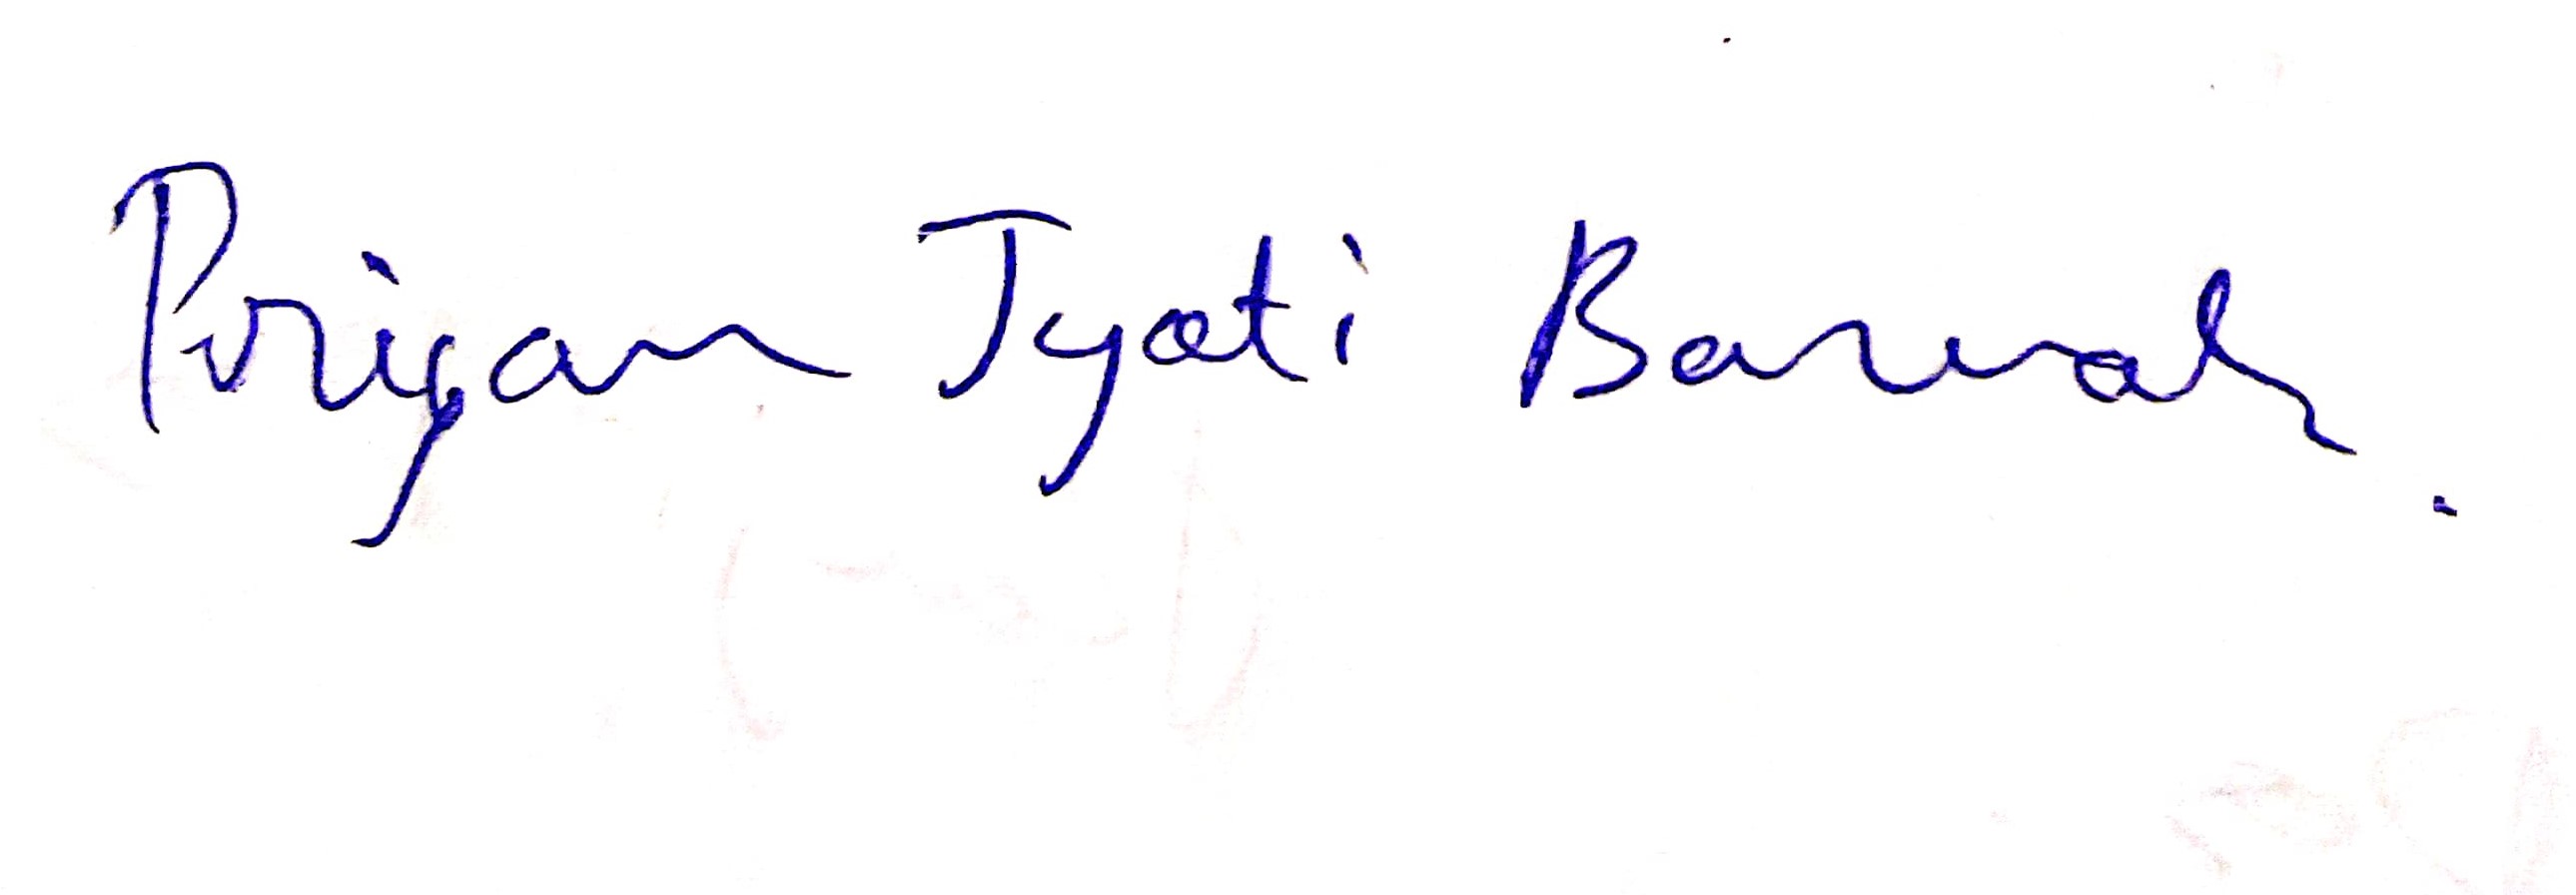 Priyam Jyoti Baruah.